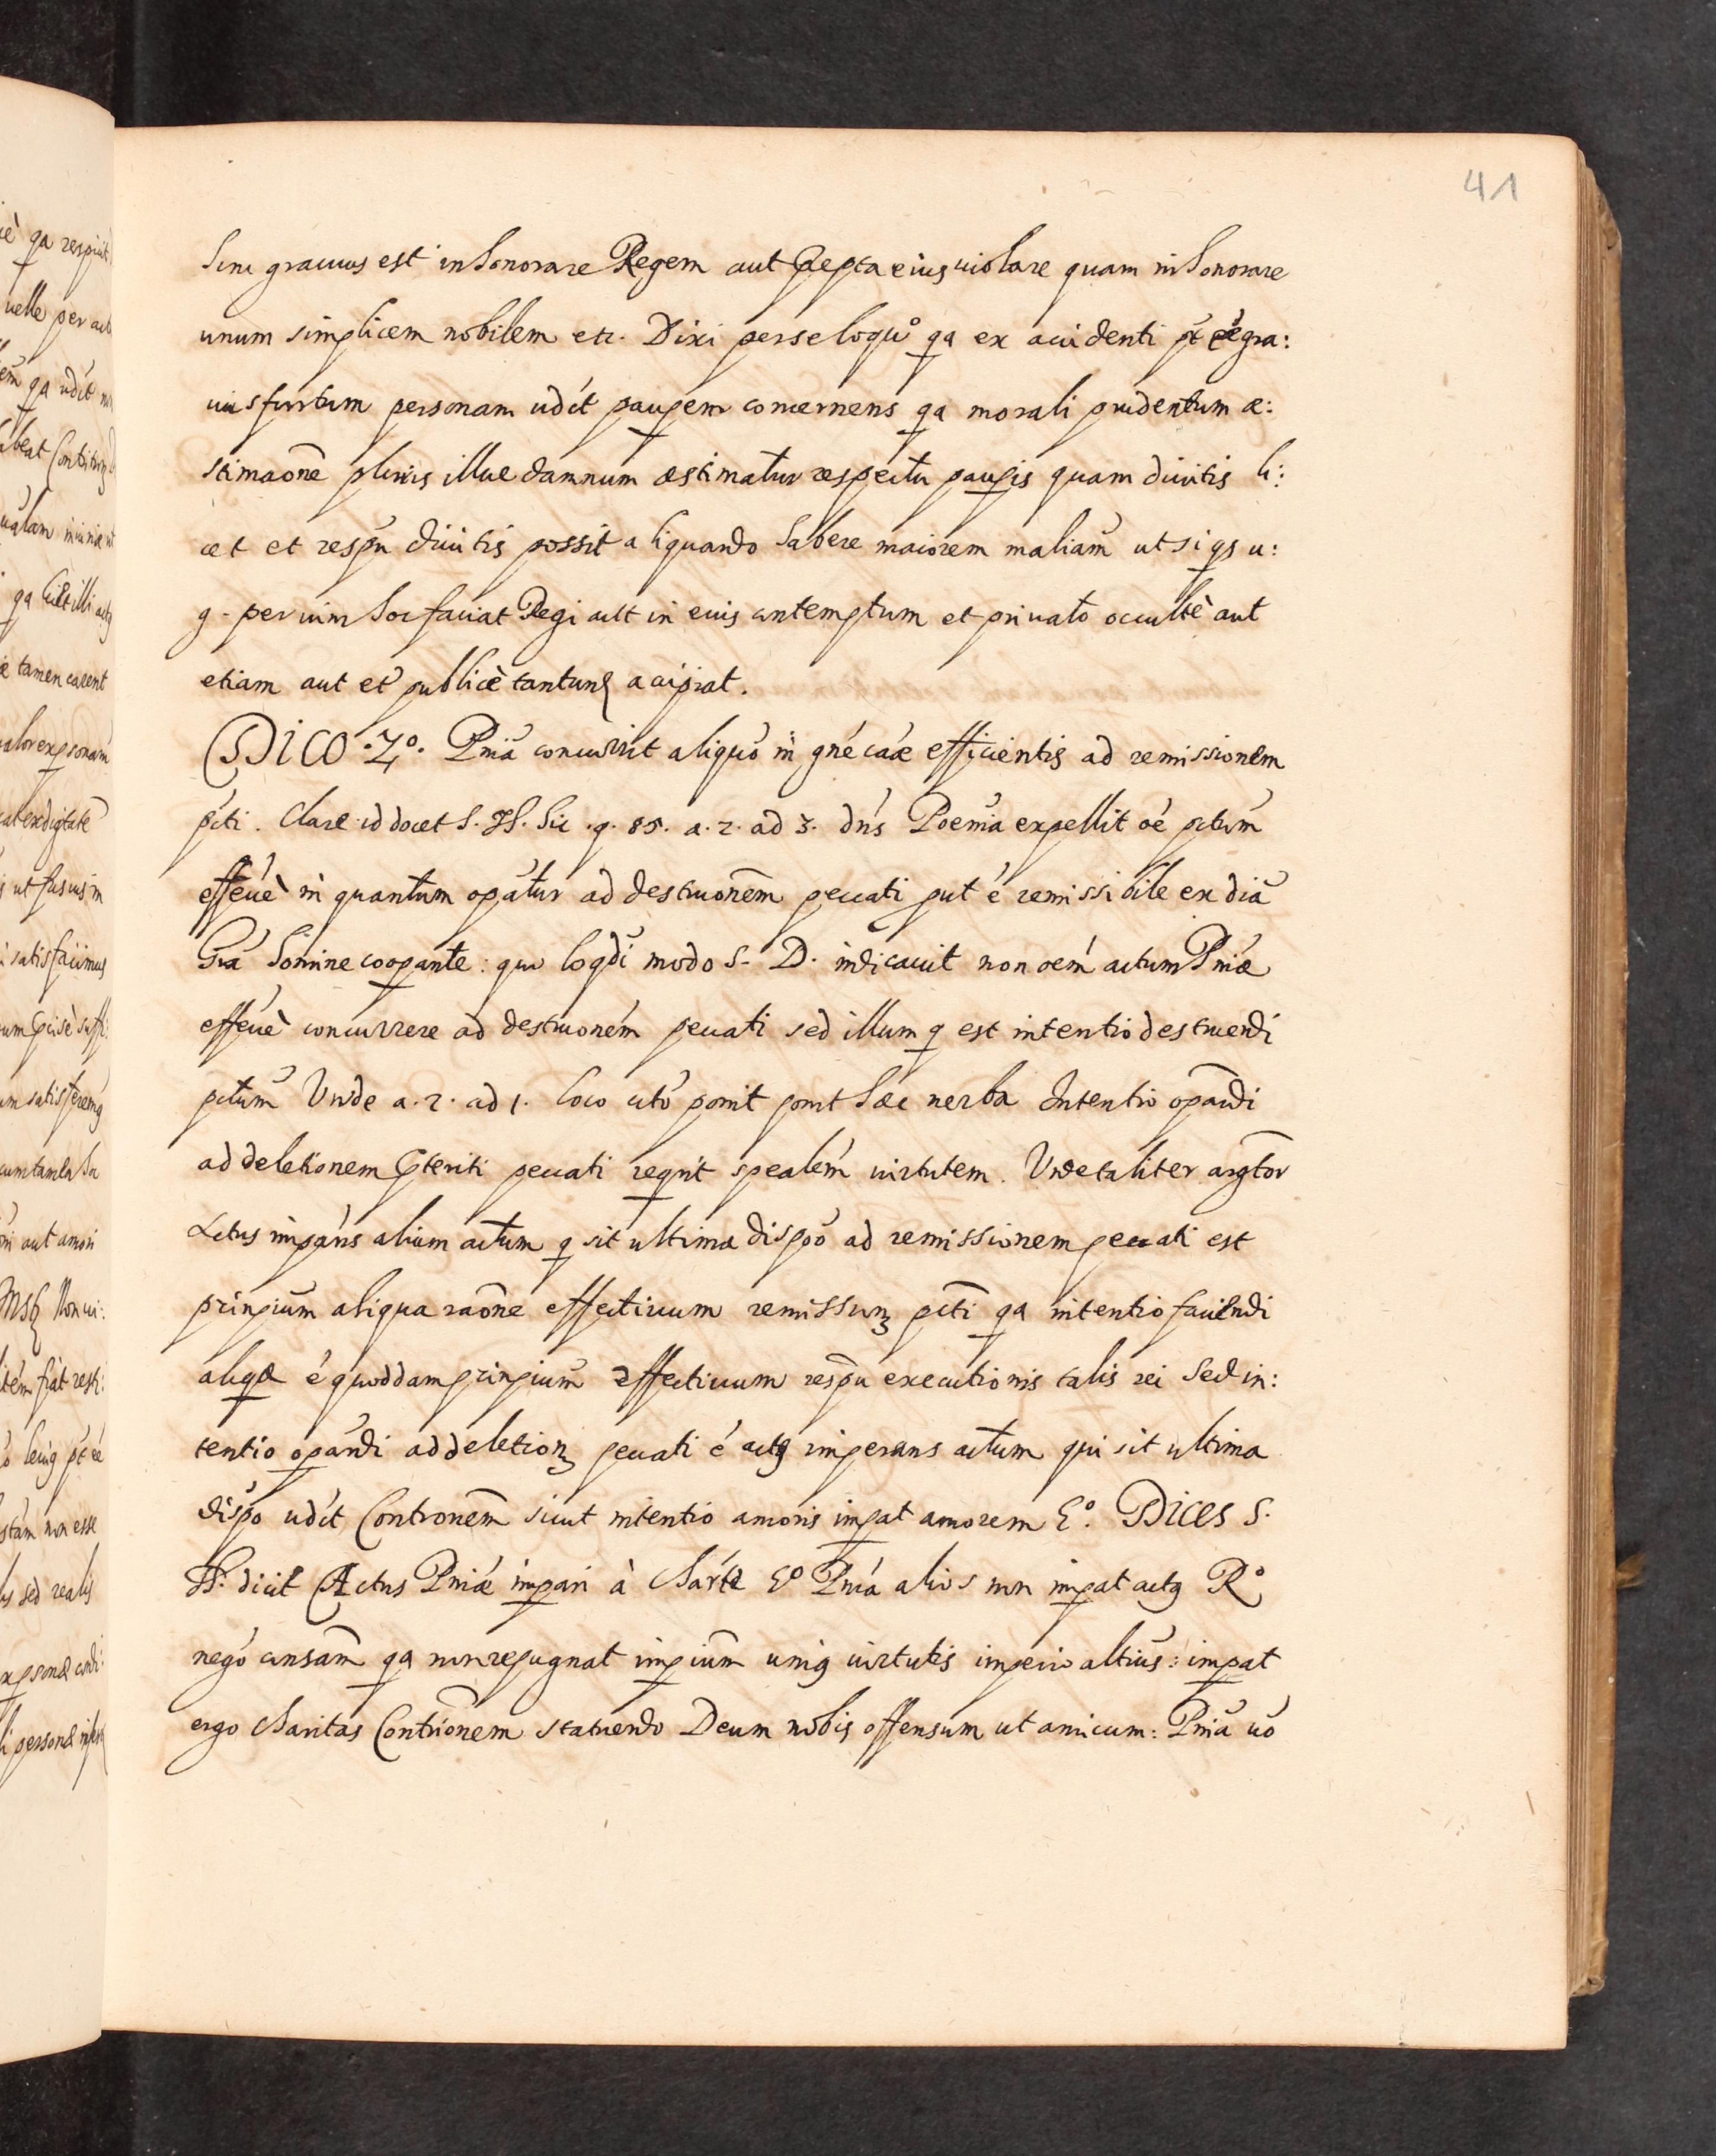 41
hinc grauius est inhonorare Regem aut Præcepta eius uiolare quam inhonorare
unum simplicem nobilem etc. Dixi per se loqudo qa ex accidenti pt eê gra:
uius furtum personam udĉt pauperem concernens qa morali prudentum æ:
stimaōne pluris illud damnum æstimatur respectu pauperis quam diuitis li:
cet et respū diuitis possit aliquando habere maiorem maliam̄ ut si qs u:
g. per uim hoc faciat Regi aut in euis contemptum et priuato occultè aut
etiam aut et publicè tantund accipiat.
DICO .2º. Pniā concurrit aliquō in gnē caæ efficientis ad remissionem
pcti. Clare id docet S. Th. hic .q. 85. a. 2. ad 3. dns Poenia expellit oē pctum
effeuè in quantum opatur ad destruonem peccati put ē remissibile ex dia
Gra homine coopante: quo loqdi modo S. D. indicauit non oem actum Pniæ
effeuè concurrere ad destruonem peccati sed illum q est intentio destruendi
pctum Unde a. 2. ad 1. loco cito ponit hæc uerba Intentio opandi
ad deletionem præteriti peccati reqrit spealem uirtutem. Unde taliter argtor
Actus impans alium actum q sit ultima dispo ad remissionem peccati est
prinpium aliqua raōne effectiuum remissionis pcti qa intentio faciendi
aliqd ē quoddam prinpium effectiuum respu executionis talis rei Sed in:
tentio opandi ad deletionem peccati ē actus imperans actum qui sit ultima
dispo udct Contronem sicut intentio amoris impat amorem Eº. Dices S.
Th. dicit Actus Pniæ impari à Charte Eº Pnia alios non impat actus Rº
nego consam qa non repugnat impium unius uirtutis imperio altius: impat
ergo Charitas Contrionem statuendo Deum nobis offensum ut amicum: Pnia uo